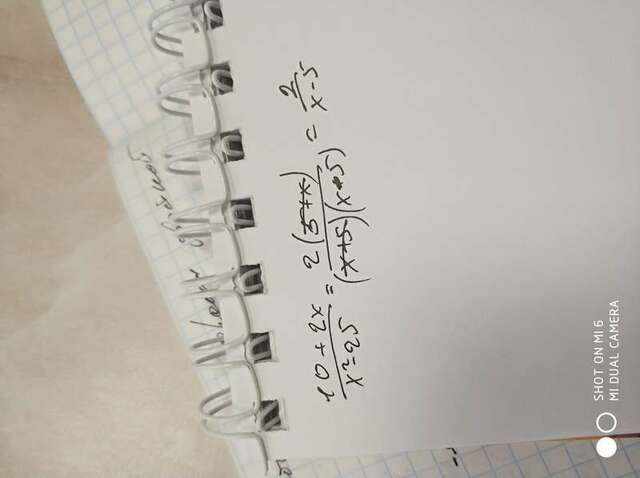 дробной
(10 + 2x)/(x² - 25) = 2(5+x)/((x+5)(x-5)) = 2/(x-5)
SHOT ON MI 6
MI DUAL CAMERA